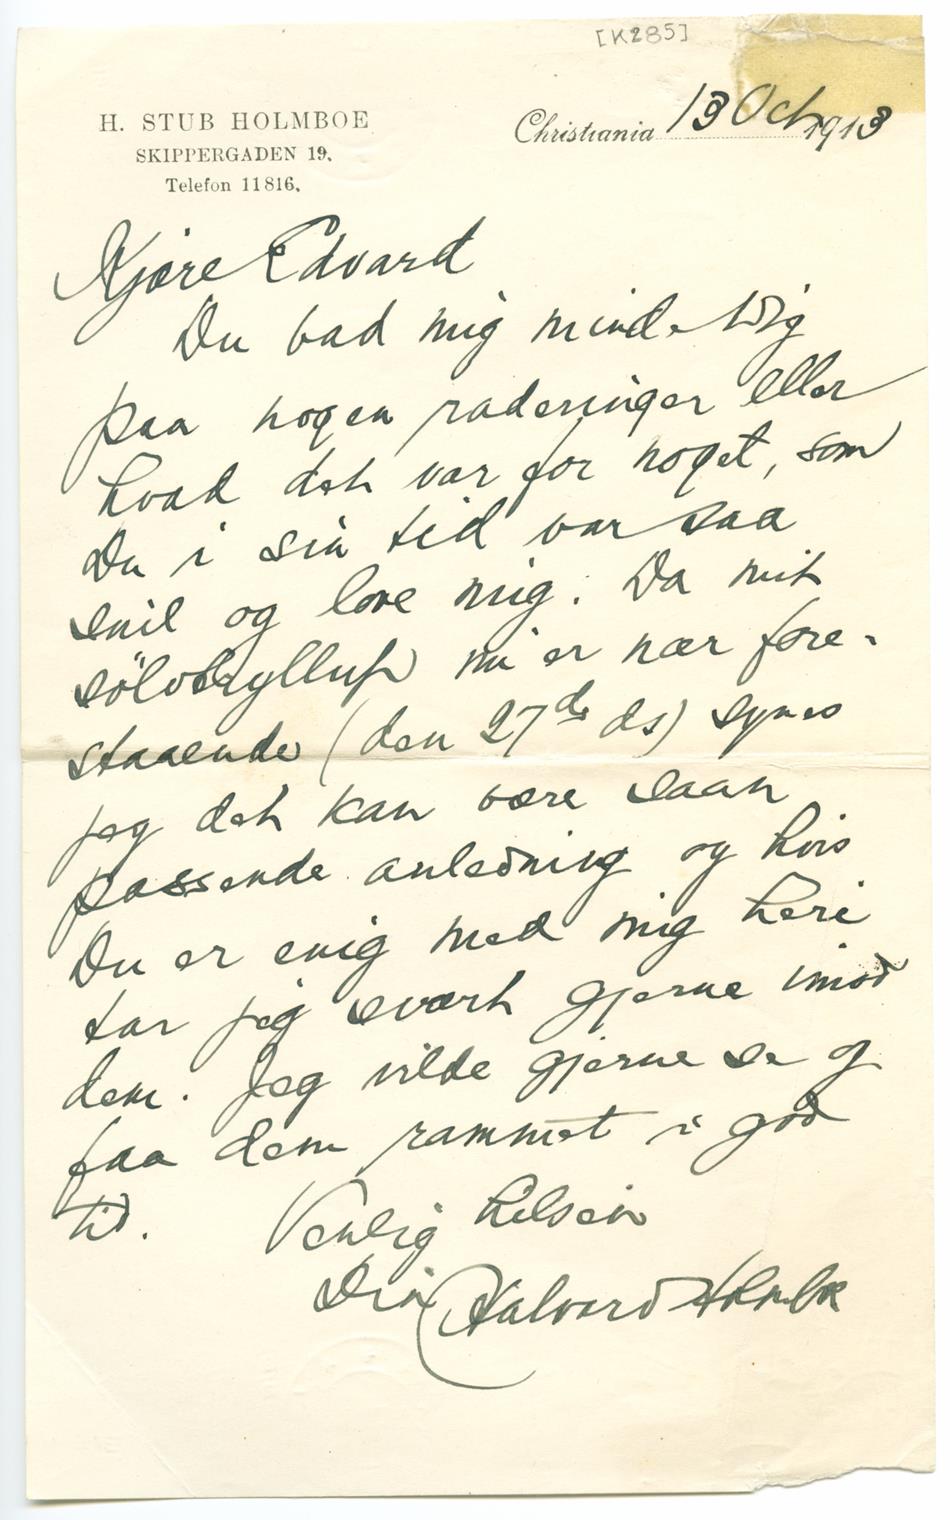 [K285]
H. STUB HOLMBOE
SKIPPERGADEN 19.
Telefon 11816.
Christiania 13 Oct 1913
Kjære Edvard
Du bad mig minde Dig
paa nogen raderinger eller
hvad det var for noget, som
Du i sin tid var saa
snil og love mig. Da mit
sölvbryllup nu er nær fore-
staaende (den 27de ds) synes
jeg det kan være saan
passende anledning og hvis
Du er enig med mig heri
tar jeg svært gjerne imod
dem. Jeg vilde gjerne se og
faa dem rammet i god
tid. Venlig hilsen
Din Halvard Holmboe